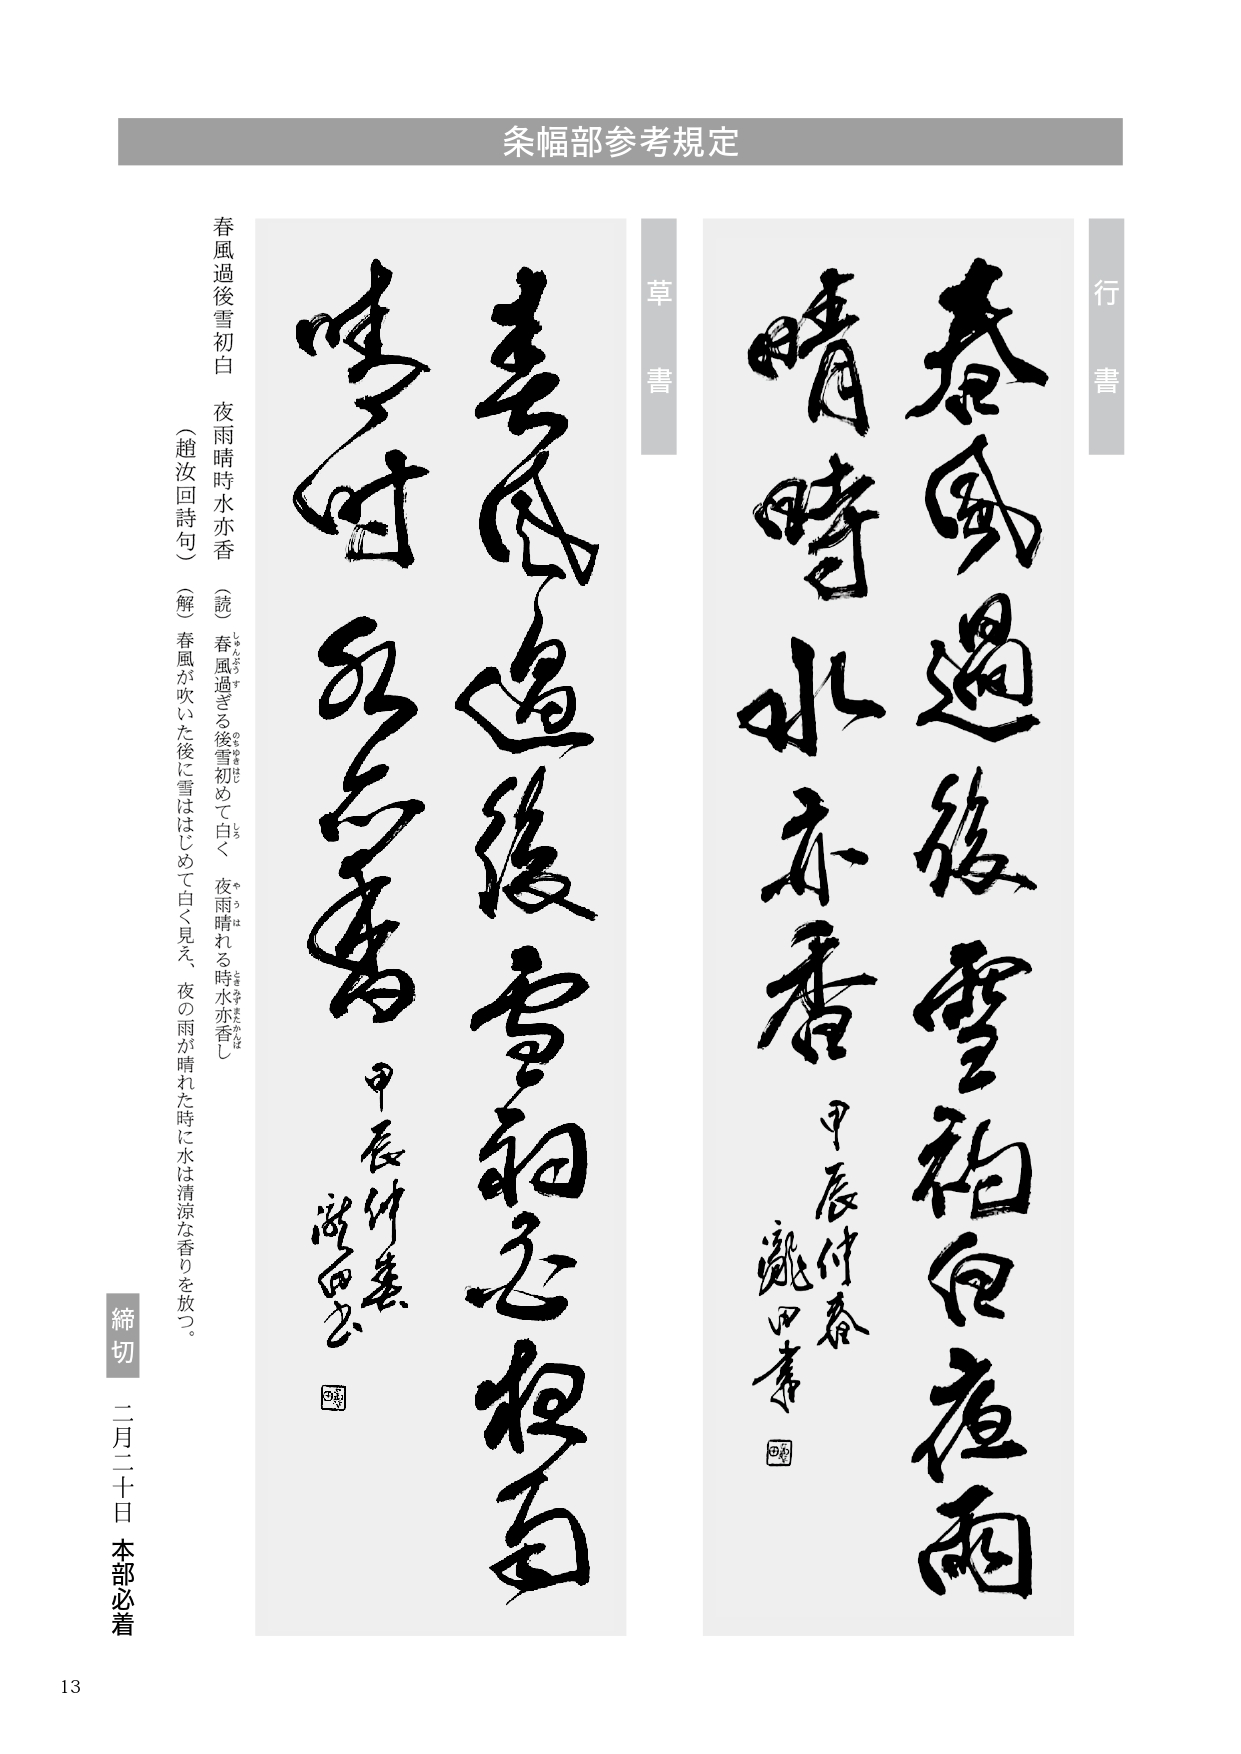 条幅部参考規定
行書
春風過後雪初白夜雨
晴時水亦香
甲辰仲春
瀧田書
草書
春風過後雪初白夜雨
晴時水亦香
甲辰仲春
瀧田書
春風過後雪初白　夜雨晴時水亦香　（読）春風過ぎる後雪初めて白く　夜雨晴れる時水亦香し
しゅんぷうす　のちゆきはじ　しろ　やうは　ときみずまたかんば
（趙汝回詩句）（解）春風が吹いた後に雪ははじめて白く見え、夜の雨が晴れた時に水は清涼な香りを放つ。
締切　二月二十日　本部必着
13